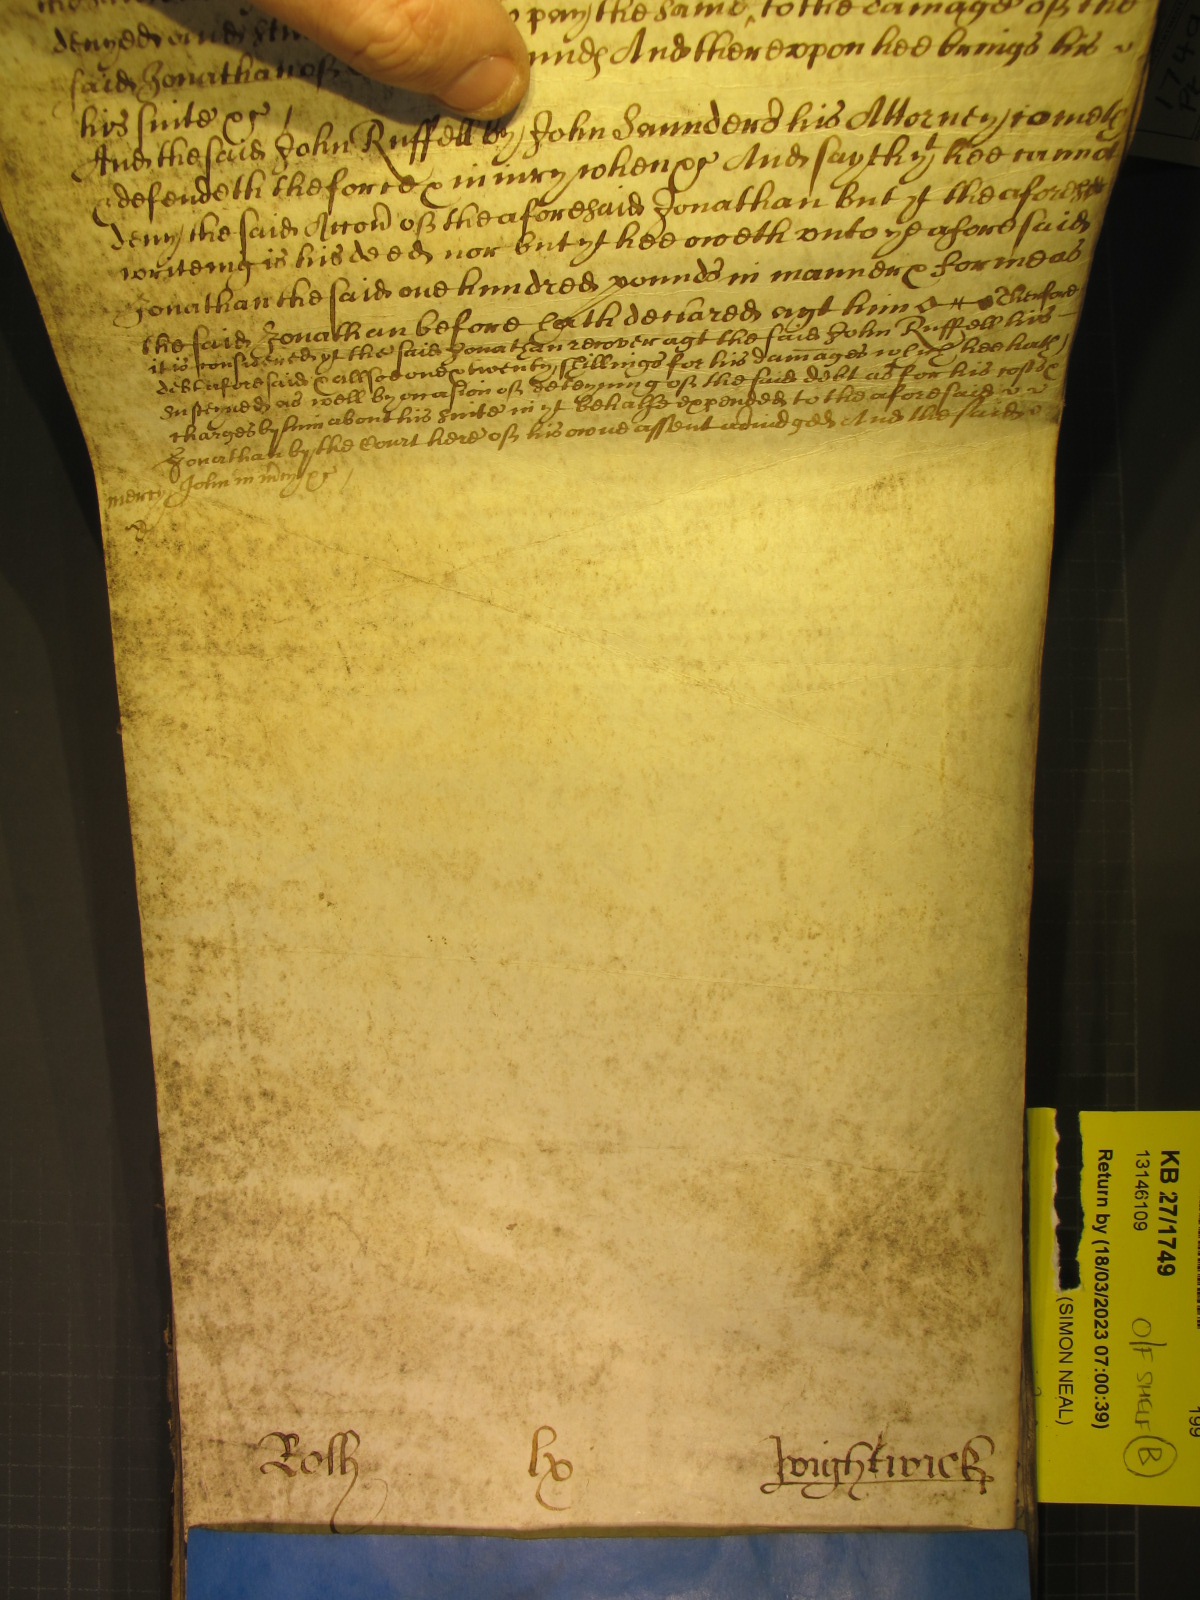 pay the same, to the damage of the
denyed and still unds And thereupon hee brings his
said Jonathan of
his suite &c /
And the said John Ruffell by John Saunders his Attorney cometh
& defendeth the force & iniury when &c And sayth yt hee cannot
deny the said Accon of the aforesaid Jonathan but yt the aforesaid
writeing is his deed nor but yt hee oweth vnto ye aforesaid
Jonathan the said one hundred pounds in manner & forme as
the said Jonathan before hath declared agt him Therefore
it is considered yt the said Jonathan recover agt the said John Ruffell his
debt aforesaid & allsoe one & twenty shillings for his damages wch hee hath
susteined as well by occasion of deteyning of the said debt as for his costs &
charges by him about his suite in yt behalfe expended to the aforesaid
Jonathan by the Court here of his owne assent adiudged And the said
mercy John in mcy &c /
Roth lx Wightwick
KB 27/1749
13146109
Return by (18/03/2023 07:00:39)
(SIMON NEAL)
O/F SHELF B
199